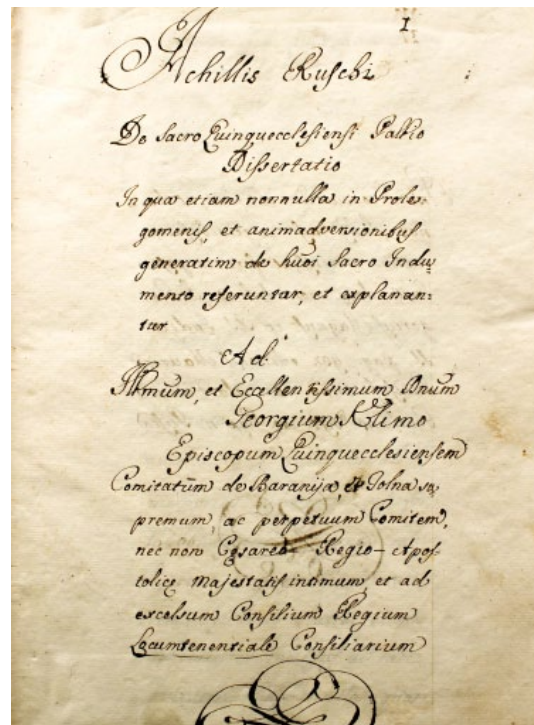 1
Achillis Ruschi
De Sacro Quinqueecclesiensi Pallio
Dissertatio
In qua etiam nonnulla in Prole-
gomenis, et animadversionibus
generatim de hujusmodi Sacro Indu-
mento referuntar, et explanan-
tur
Ad
Illmum, et Eccellentissimum Dnum
Georgium Klimo
Episcopum Quinqueecclesiensem
Comitatūm de Baranija, et Tolna su
premum, ac perpetuum Comitem,
nec non Cęsareo-Regio-Apos-
tolicę Majestatis intimum, et ad
excelsum Consilium Regium
Locumtenentiale Consiliarium